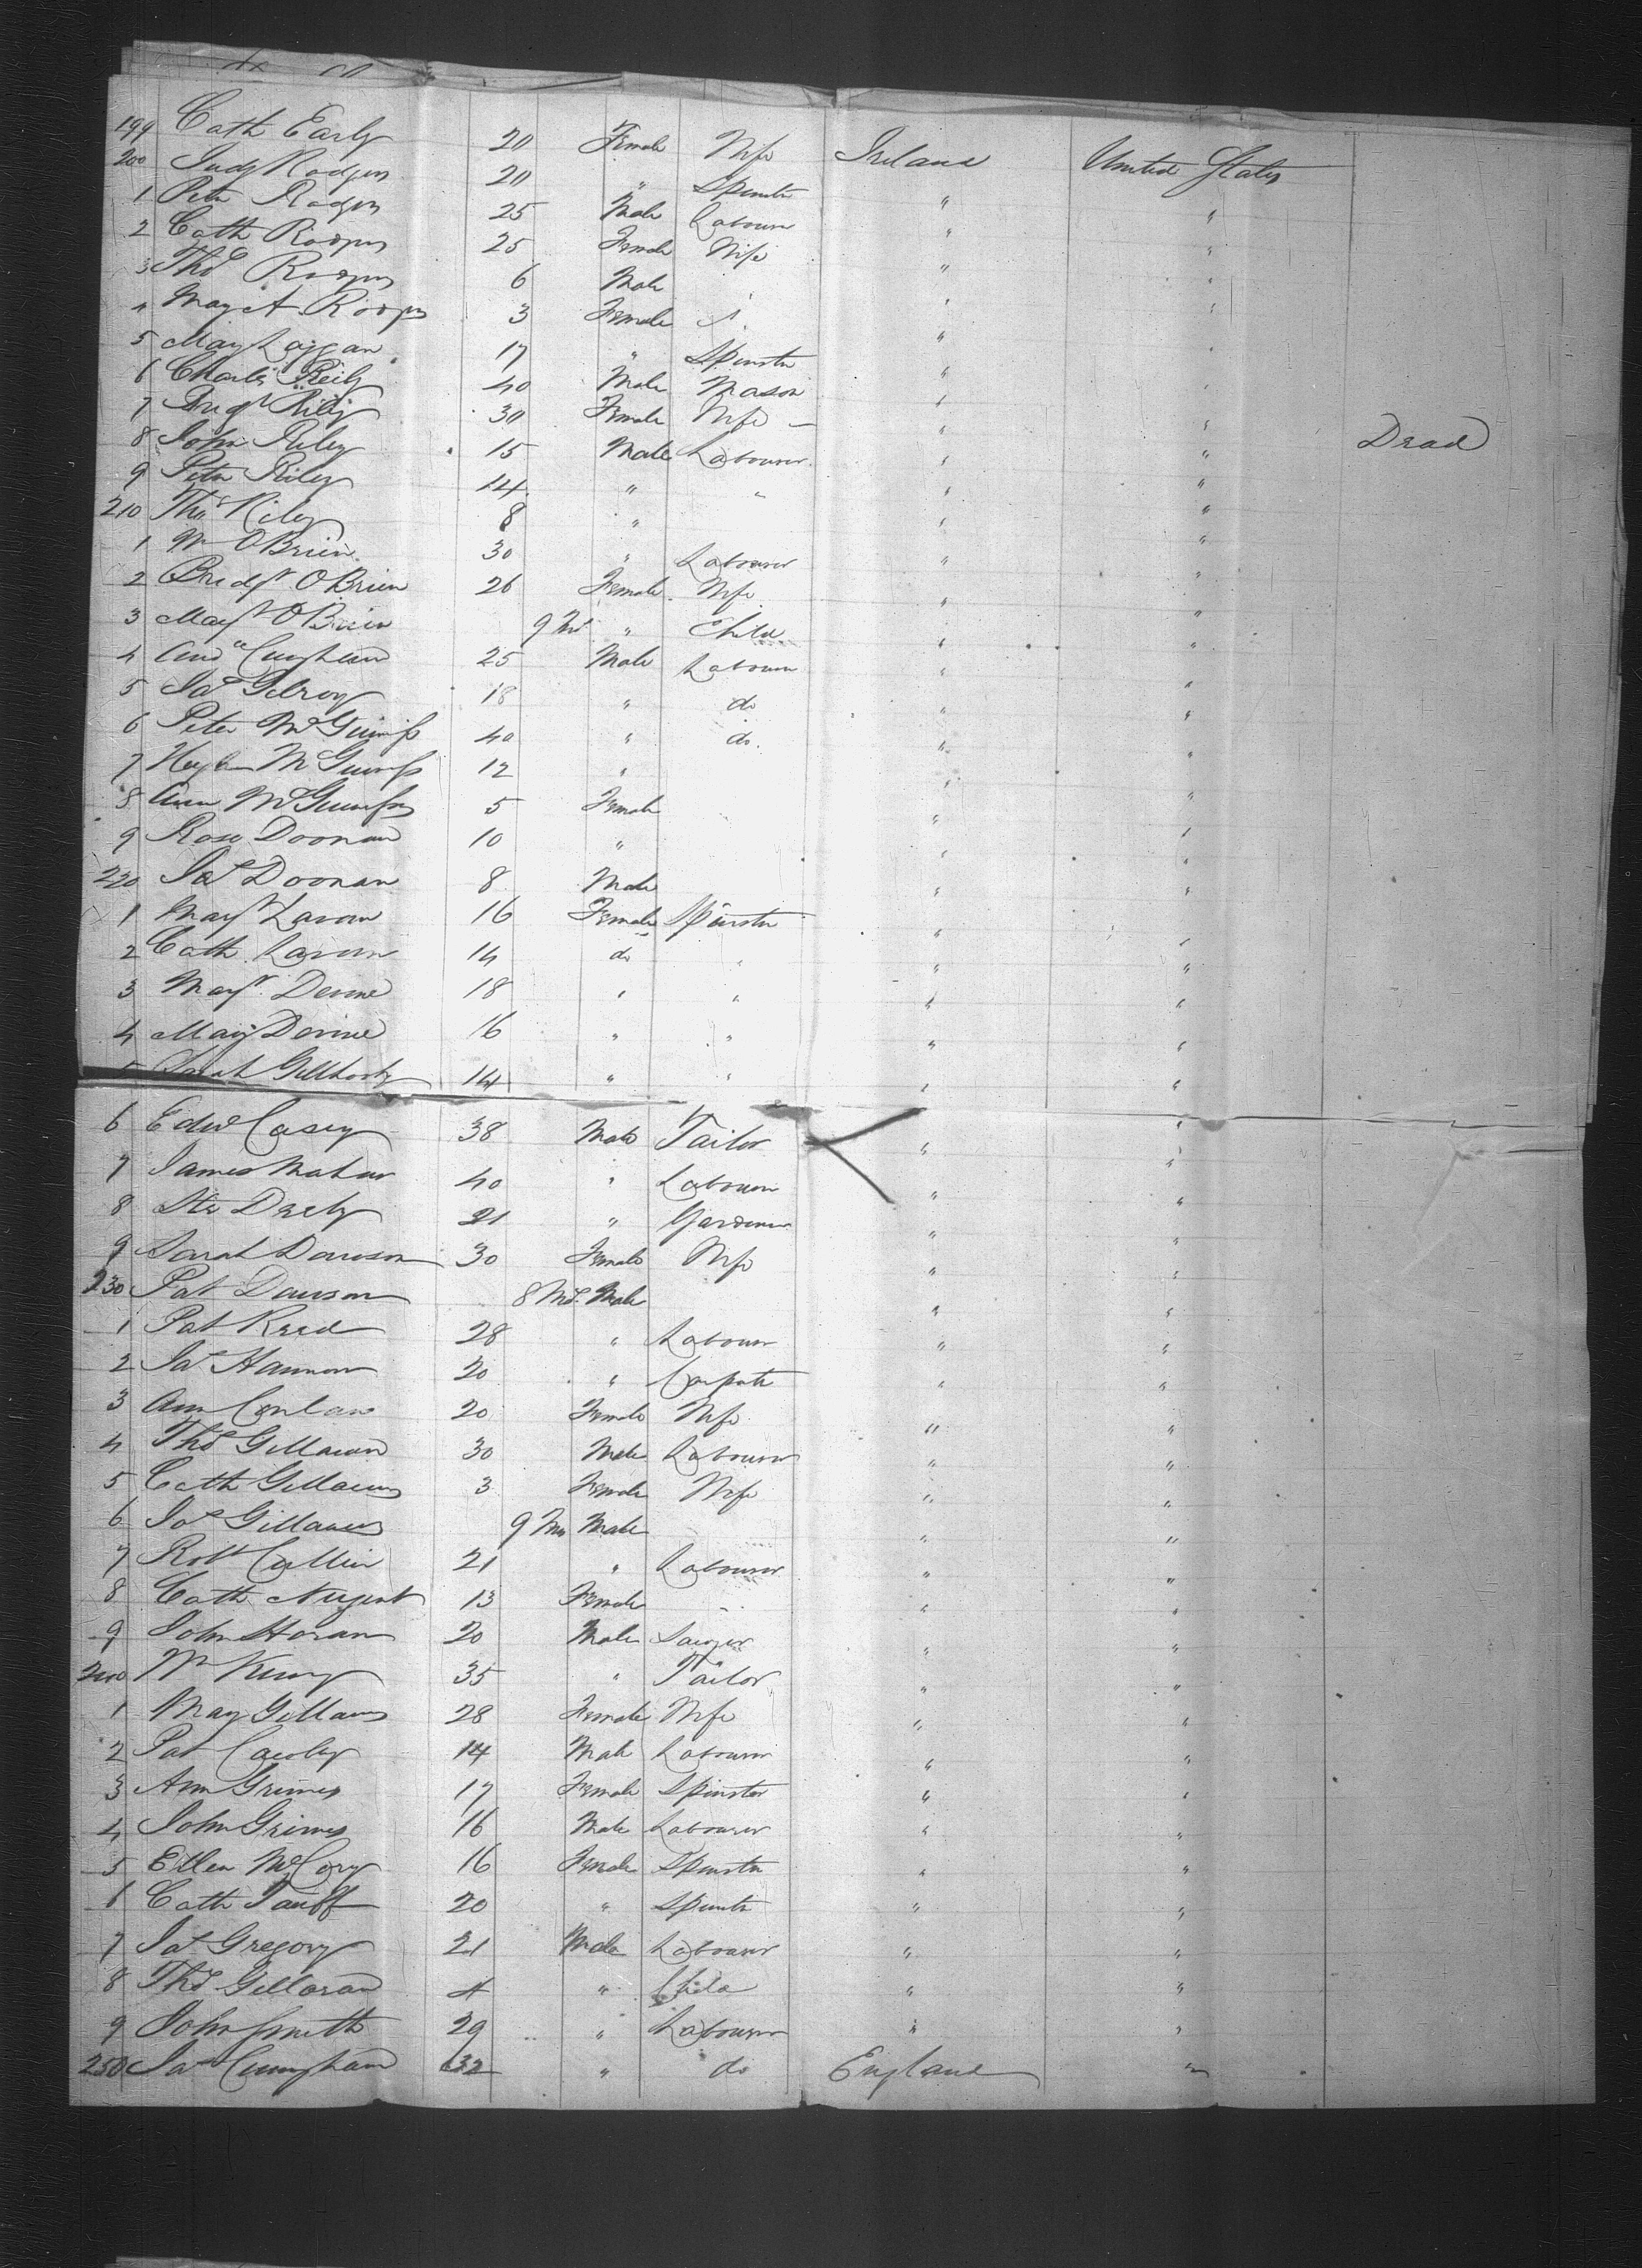 199 Cath Early 20 Female Wife Ireland United States
200 Judy Rodgers 20 " Spinstr " "
1 Petr Rodgers 25 Male Labourer " "
2 Cath Rodgers 25 Female Wife " "
3 Thos Rodgers 6 Male " "
4 Mary A. Rodgers 3 Female " "
5 Mary 17 " Spinstr " "
6 Charles Reily 40 Male Mason " "
7 Bridgt Riley 30 Female Wife " "
8 John Riley 15 Male Labourer " " Dead
9 Petr Riley 14 " " " "
210 Thos Riley 8 " " "
1 Wm O Brien 30 " Labourer " "
2 Bridgt O Brien 26 Female Wife " "
3 Margt O Brien 9 Ms " Child " "
4 Andw 25 Male Labourer " "
5 Jas Gilroy 18 " do " "
6 Peter McGuiness 40 " do " "
7 Hugh McGuiness 12 " " "
8 Ann McGuiness 5 Female " "
9 Rose Doonan 10 " " "
220 Jas Doonan 8 Male " "
1 Margt Lavan 16 Female Spinstr " "
2 Cath Lavan 14 do " " "
3 Margt Devine 18 " " " "
4 Mary Devine 16 " " " "
5 Sarah 14 " " " "
6 Edwd Casey 38 Male Tailor " "
7 James Mahar 40 " Labourer " "
8 21 " Gardener " "
9 Sarah Dawson 30 Female Wife " "
230 Pat Dawson 8 Ms Male " "
1 Pat Reed 28 " Labourer " "
2 Jas Hannon 20 " Carpentr " "
3 Ann Conlan 20 Female Wife " "
4 Thos Gillaran 30 Male Labourer " "
5 Cath Gillaran 3 Female Wife " "
6 Jos Gillaran 9 Ms Male " "
7 Robt Callin 21 " Labourer " "
8 Cath Nugent 13 Female " "
9 John Horan 20 Male Sawyer " "
240 Wm 35 " Tailor " "
1 Mary Gillaran 28 Female Wife " "
2 Pat 14 Male Labourer " "
3 Ann Grimes 17 Female Spinster " "
4 John Grimes 16 Male Labourer " "
5 Ellen McCory 16 Female Spinstr " "
6 Cath Tauff 20 " Spinstr " "
7 Jas Gregory 21 Male Labourer " "
8 Thos Gilloran 4 " Child " "
9 John Smith 29 " Labourer " "
250 Jas Cuningham 32 " do England "